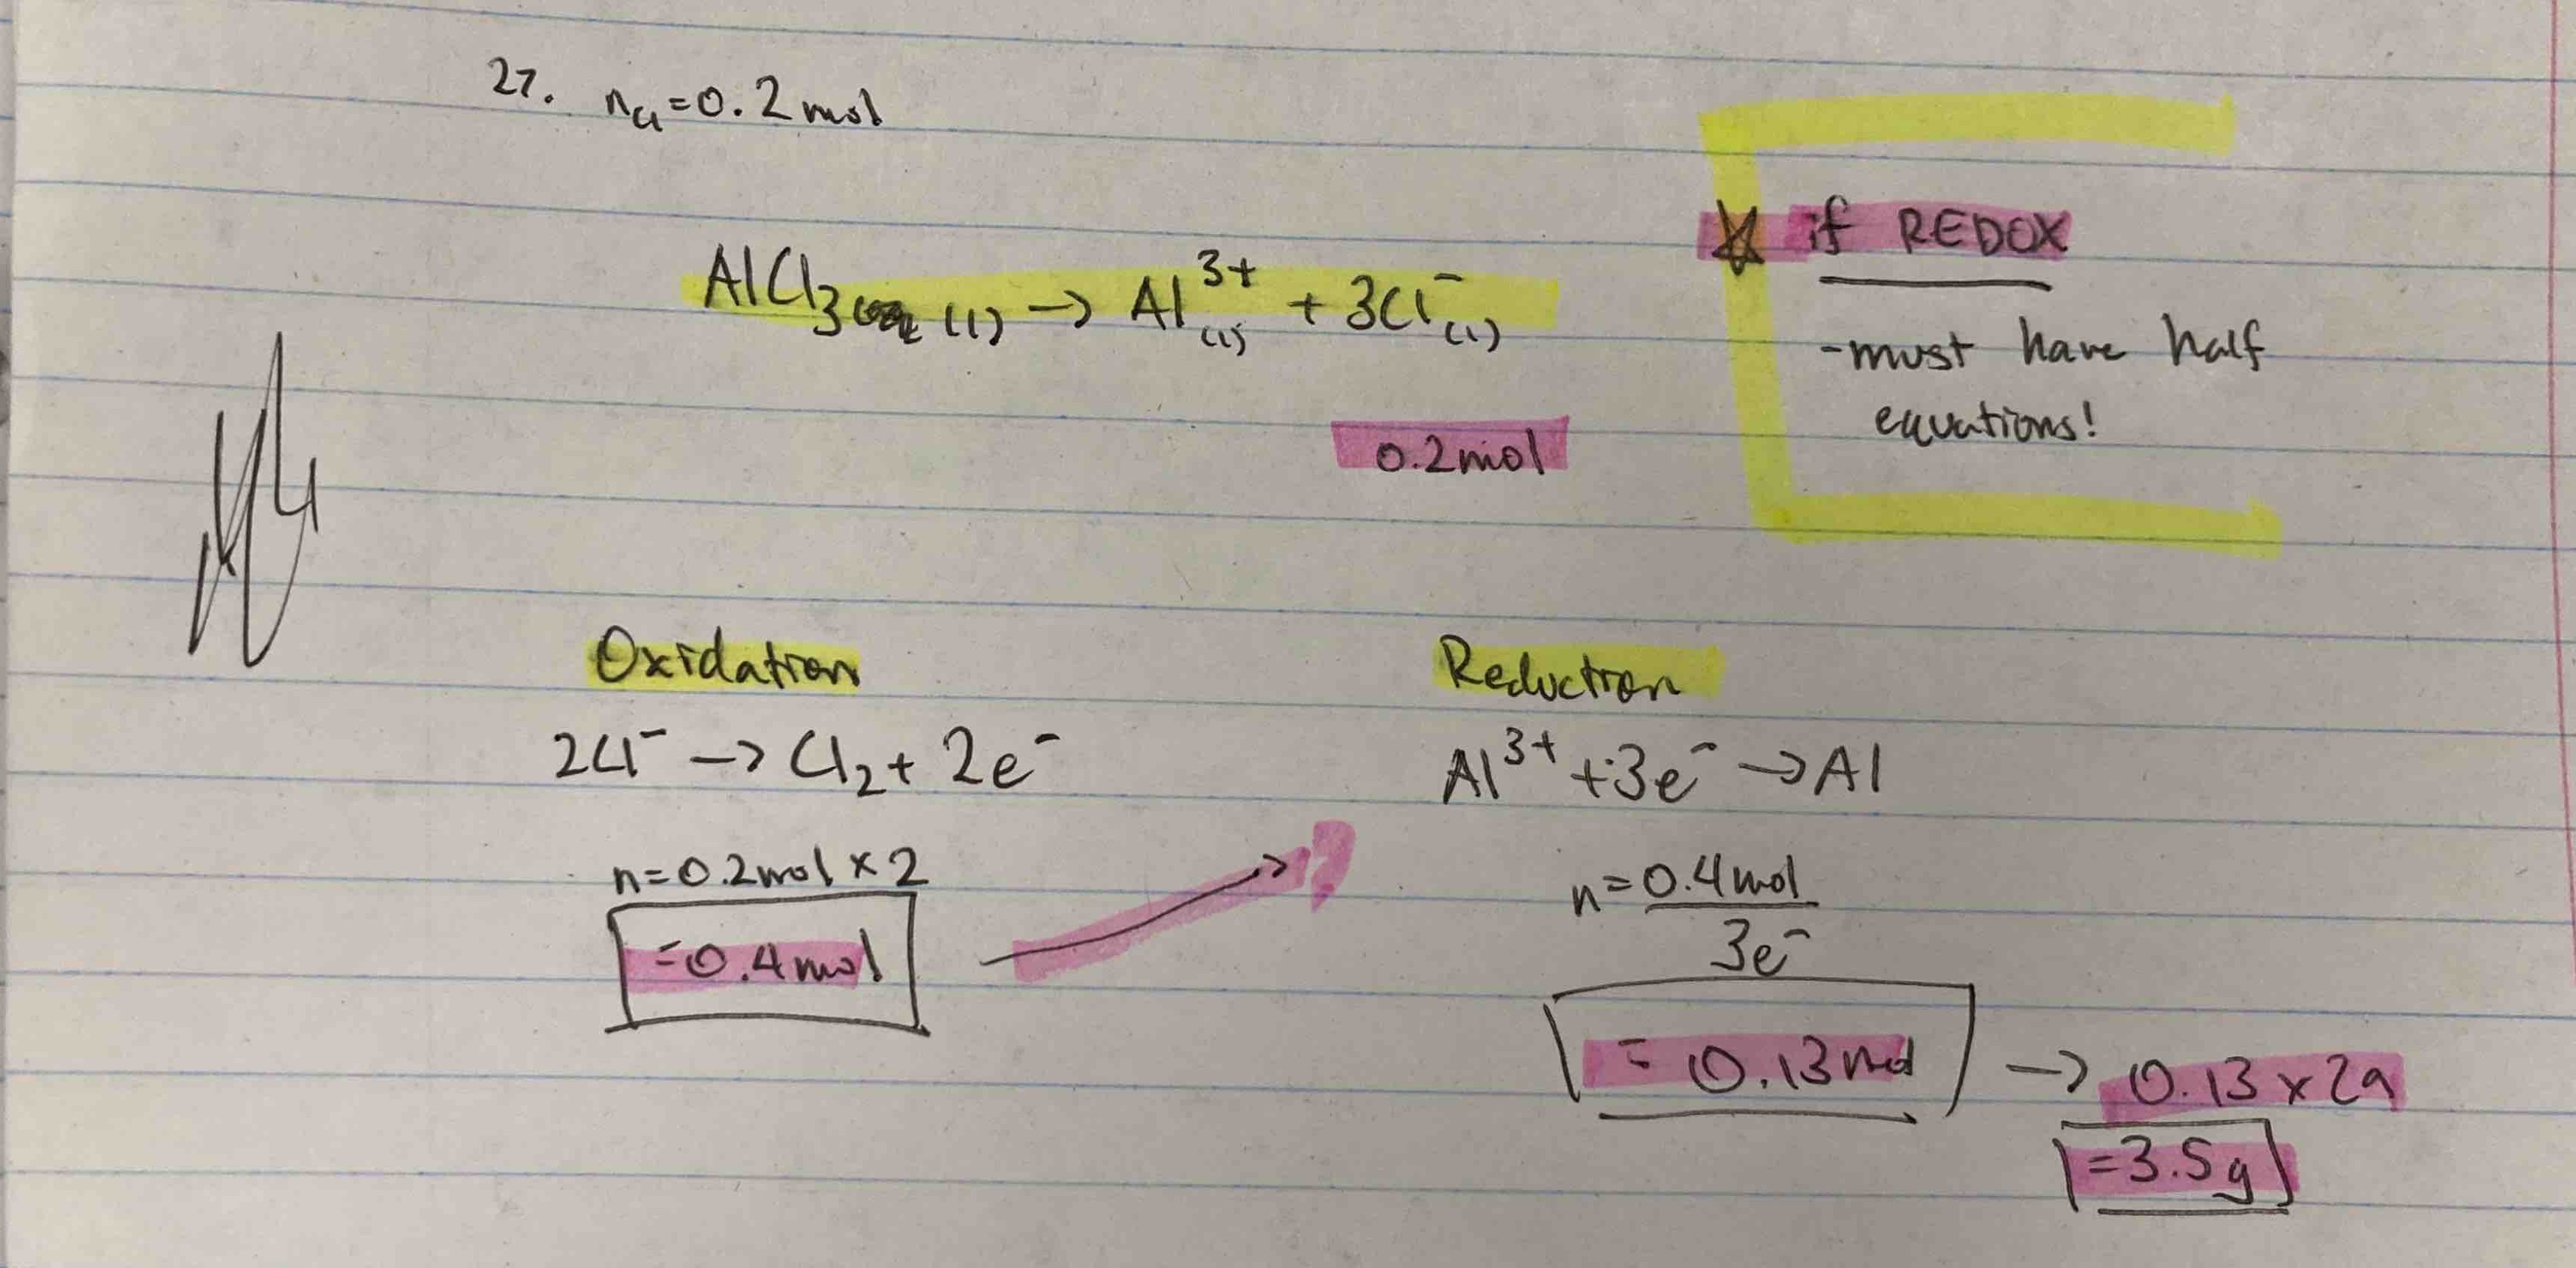 27. nCl = 0.2 mol
AlCl₃ (l) → Al³⁺(l) + 3Cl⁻(l)
0.2 mol
☆ if REDOX
- must have half
equations!
Oxidation
2Cl⁻ → Cl₂ + 2e⁻
n = 0.2 mol × 2
= 0.4 mol
→ ?
Reduction
Al³⁺ + 3e⁻ → Al
n = 0.4 mol
3e⁻
= 0.13 mol
→ 0.13 × 29
= 3.5 g